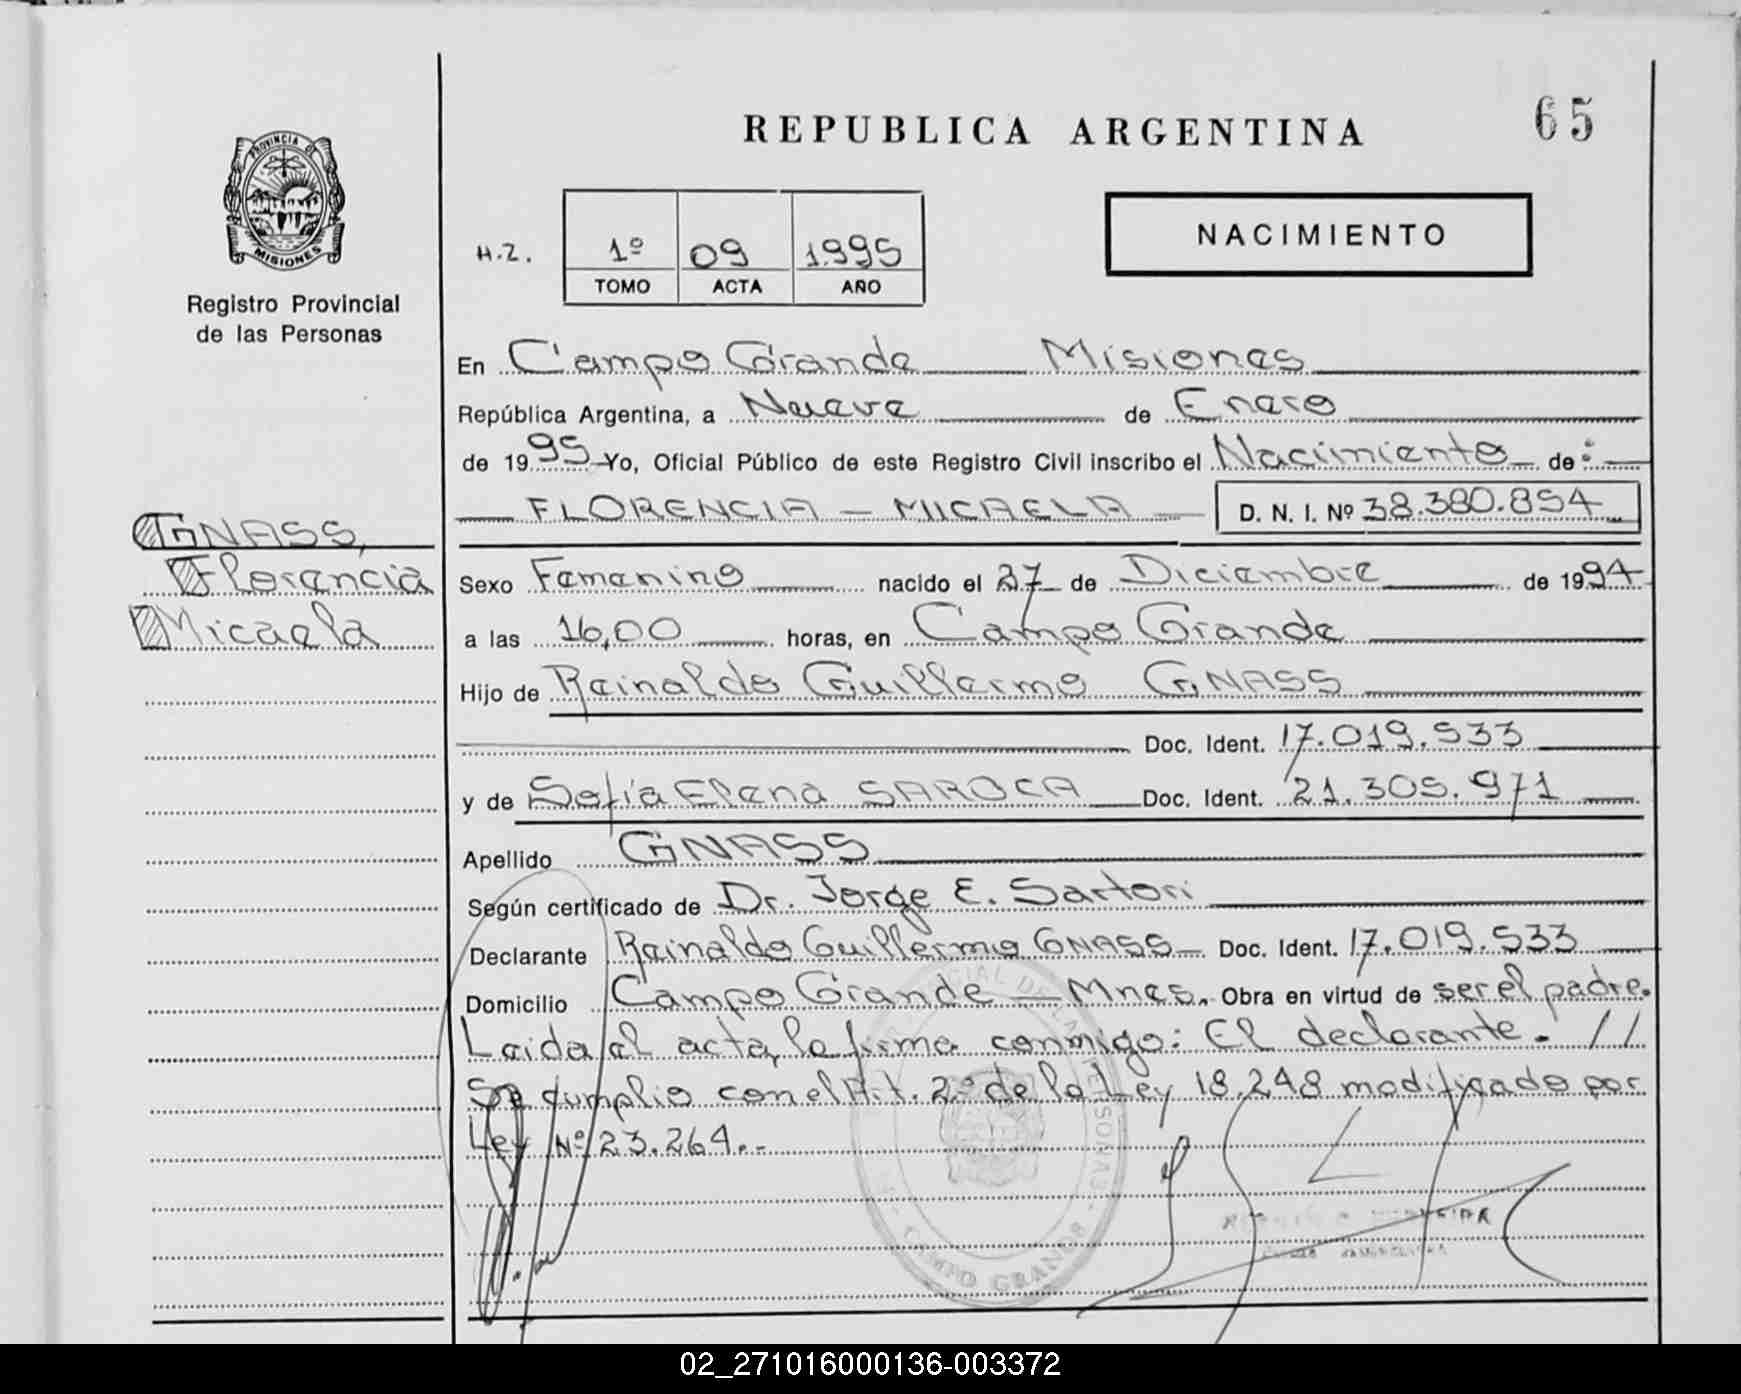 65
REPUBLICA ARGENTINA
PROVINCIA DE
MISIONES
Registro Provincial
de las Personas
NACIMIENTO
H.Z. 1º 09 1995
TOMO ACTA AÑO
En Campo Grande Misiones
República Argentina, a Nueve de Enero
de 1995 Yo, Oficial Público de este Registro Civil inscribo el Nacimiento de:
FLORENCIA - MICAELA D. N. I. Nº 38.380.854
GNASS,
Florencia
Micaela
Sexo Femenino nacido el 27 de Diciembre de 1994
a las 16,00 horas, en Campo Grande
Hijo de Reinaldo Guillermo GNASS
Doc. Ident. 17.019.533
y de Sofía Elena SAROCA Doc. Ident. 21.305.971
Apellido GNASS
Según certificado de Dr. Jorge E. Sartori
Declarante Reinaldo Guillermo GNASS Doc. Ident. 17.019.533
Domicilio Campo Grande - Mnes. Obra en virtud de ser el padre.
Leida el acta, la firma conmigo: El declarante. //
Se cumplio con el Art. 2º de la Ley 18.248 modificado por
Ley Nº 23.264.-
CAMPO GRANDE
02_271016000136-003372